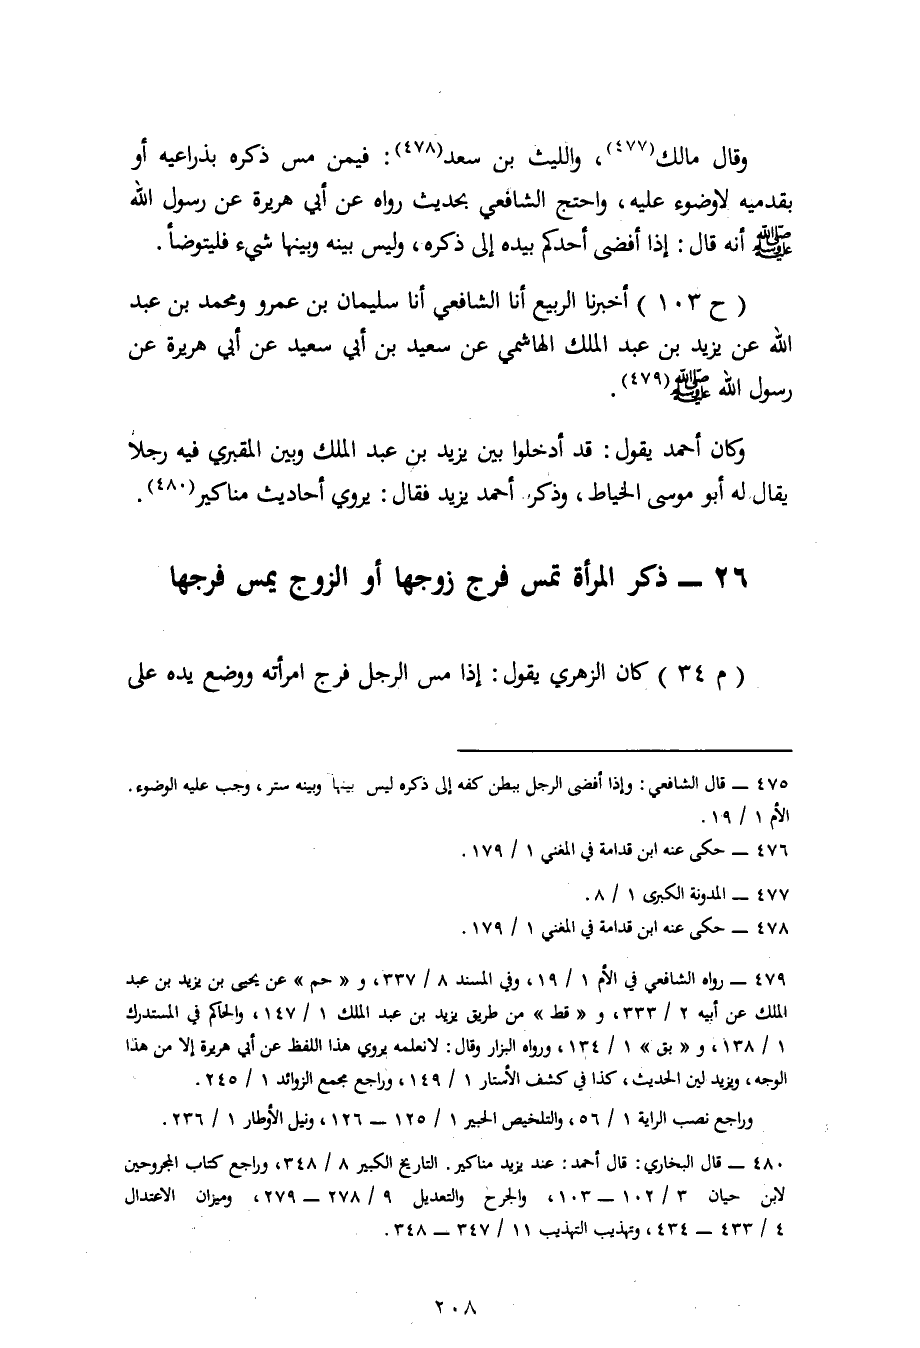 وقال مالك(٤٧٧)، والليث بن سعد(٤٧٨): فيمن مس ذكره بذراعيه أو
بقدميه لاوضوء عليه، واحتج الشافعي بحديث رواه عن أبي هريرة عن رسول الله
ﷺ أنه قال: إذا أفضى أحدكم بيده إلى ذكره، وليس بينه وبينها شيء فليتوضأ.
( ح ١٠٣ ) أخبرنا الربيع أنا الشافعي أنا سليمان بن عمرو ومحمد بن عبد
الله عن يزيد بن عبد الملك الهاشمي عن سعيد بن أبي سعيد عن أبي هريرة عن
رسول الله ﷺ(٤٧٩).
وكان أحمد يقول: قد أدخلوا بين يزيد بن عبد الملك وبين المقبري فيه رجلاً
يقال له أبو موسى الخياط، وذكر أحمد يزيد فقال: يروي أحاديث مناكير(٤٨٠).
٢٦ ــ ذكر المرأة تمس فرج زوجها أو الزوج يمس فرجها
( م ٣٤ ) كان الزهري يقول: إذا مس الرجل فرج امرأته ووضع يده على
٤٧٥ ــ قال الشافعي: وإذا أفضى الرجل ببطن كفه إلى ذكره ليس بينها وبينه ستر، وجب عليه الوضوء.
الأم ١ / ١٩.
٤٧٦ ــ حكى عنه ابن قدامة في المغني ١ / ١٧٩.
٤٧٧ ــ المدونة الكبرى ١ / ٨.
٤٧٨ ــ حكى عنه ابن قدامة في المغني ١ / ١٧٩.
٤٧٩ ــ رواه الشافعي في الأم ١ / ١٩، وفي المسند ٨ / ٣٣٧، و « حم » عن يحيى بن يزيد بن عبد
الملك عن أبيه ٢ / ٣٣٣، و « قط » من طريق يزيد بن عبد الملك ١ / ١٤٧، والحاكم في المستدرك
١ / ١٣٨، و « بق » ١ / ١٣٤، ورواه البزار وقال: لانعلمه يروي هذا اللفظ عن أبي هريرة إلا من هذا
الوجه، ويزيد لين الحديث، كذا في كشف الأستار ١ / ١٤٩، وراجع مجمع الزوائد ١ / ٢٤٥.
وراجع نصب الراية ١ / ٥٦، والتلخيص الحبير ١ / ١٢٥ ــ ١٢٦، ونيل الأوطار ١ / ٢٣٦.
٤٨٠ ــ قال البخاري: قال أحمد: عند يزيد مناكير. التاريخ الكبير ٨ / ٣٤٨، وراجع كتاب المجروحين
لابن حيان ٣ / ١٠٢ ــ ١٠٣، والجرح والتعديل ٩ / ٢٧٨ ــ ٢٧٩، وميزان الاعتدال
٤ / ٤٣٣ ــ ٤٣٤، وتهذيب التهذيب ١١ / ٣٤٧ ــ ٣٤٨.
٢٠٨